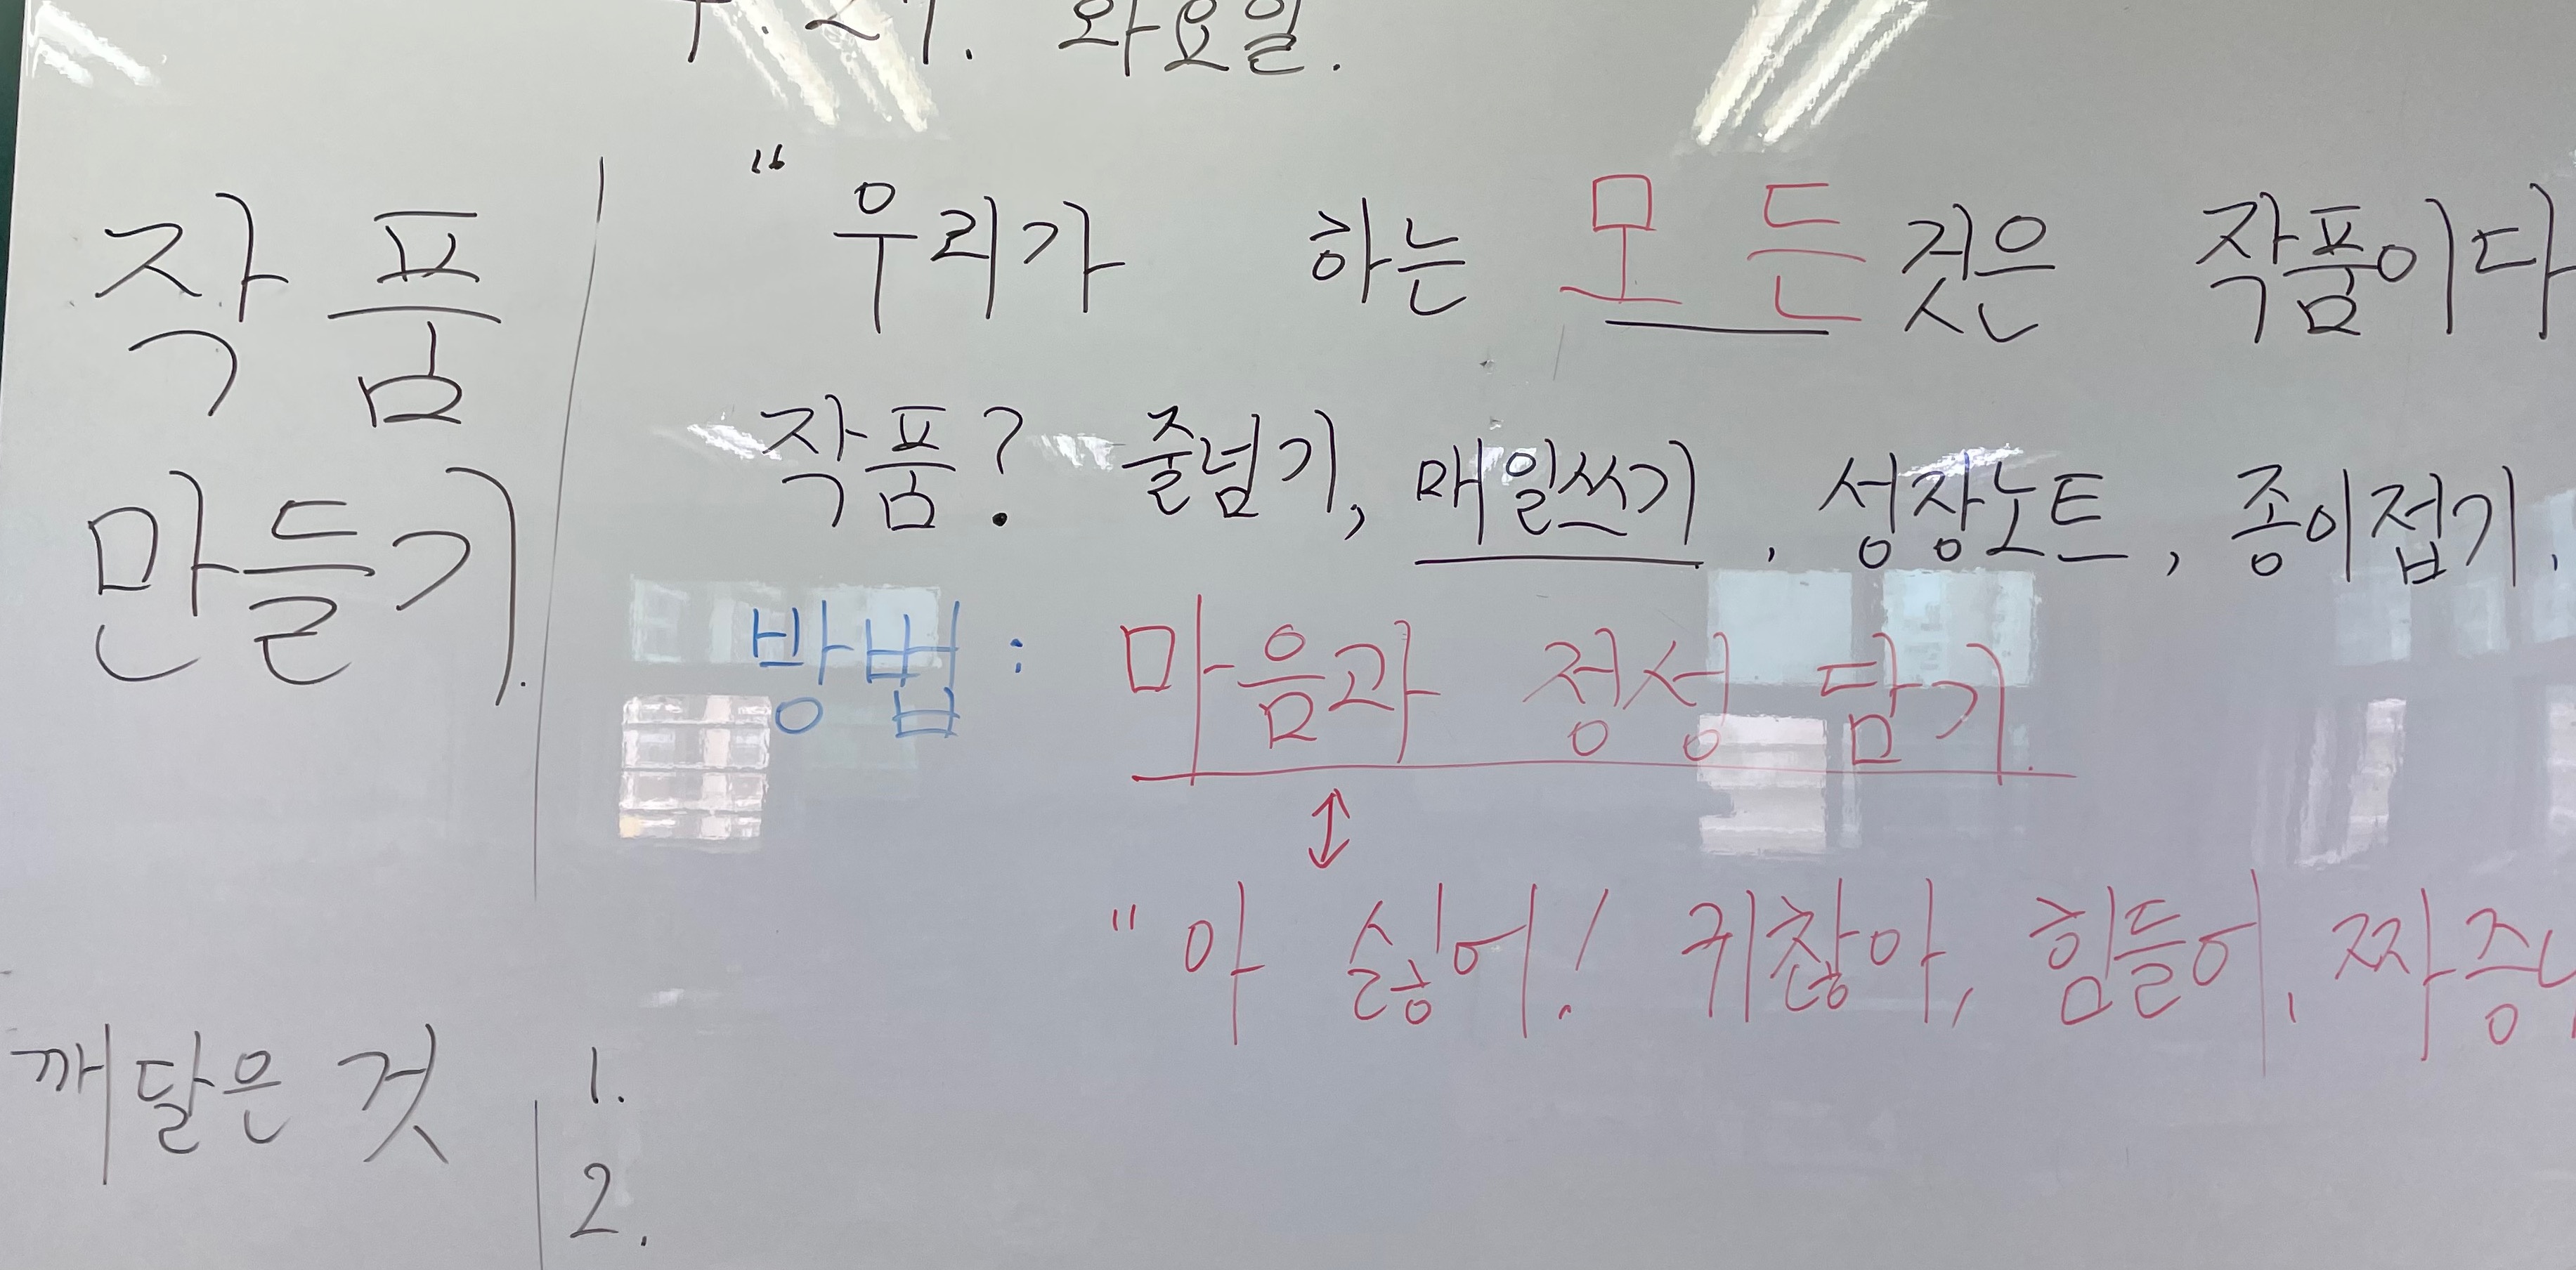 화요일.
작품 만들기.
“우리가 하는 모든 것은 작품이다
작품? 줄넘기, 매일쓰기, 성장노트, 종이접기,
방법 : 마음과 정성 담기.
↕
"아 싫어! 귀찮아, 힘들어, 짜증
깨달은 것
1.
2.